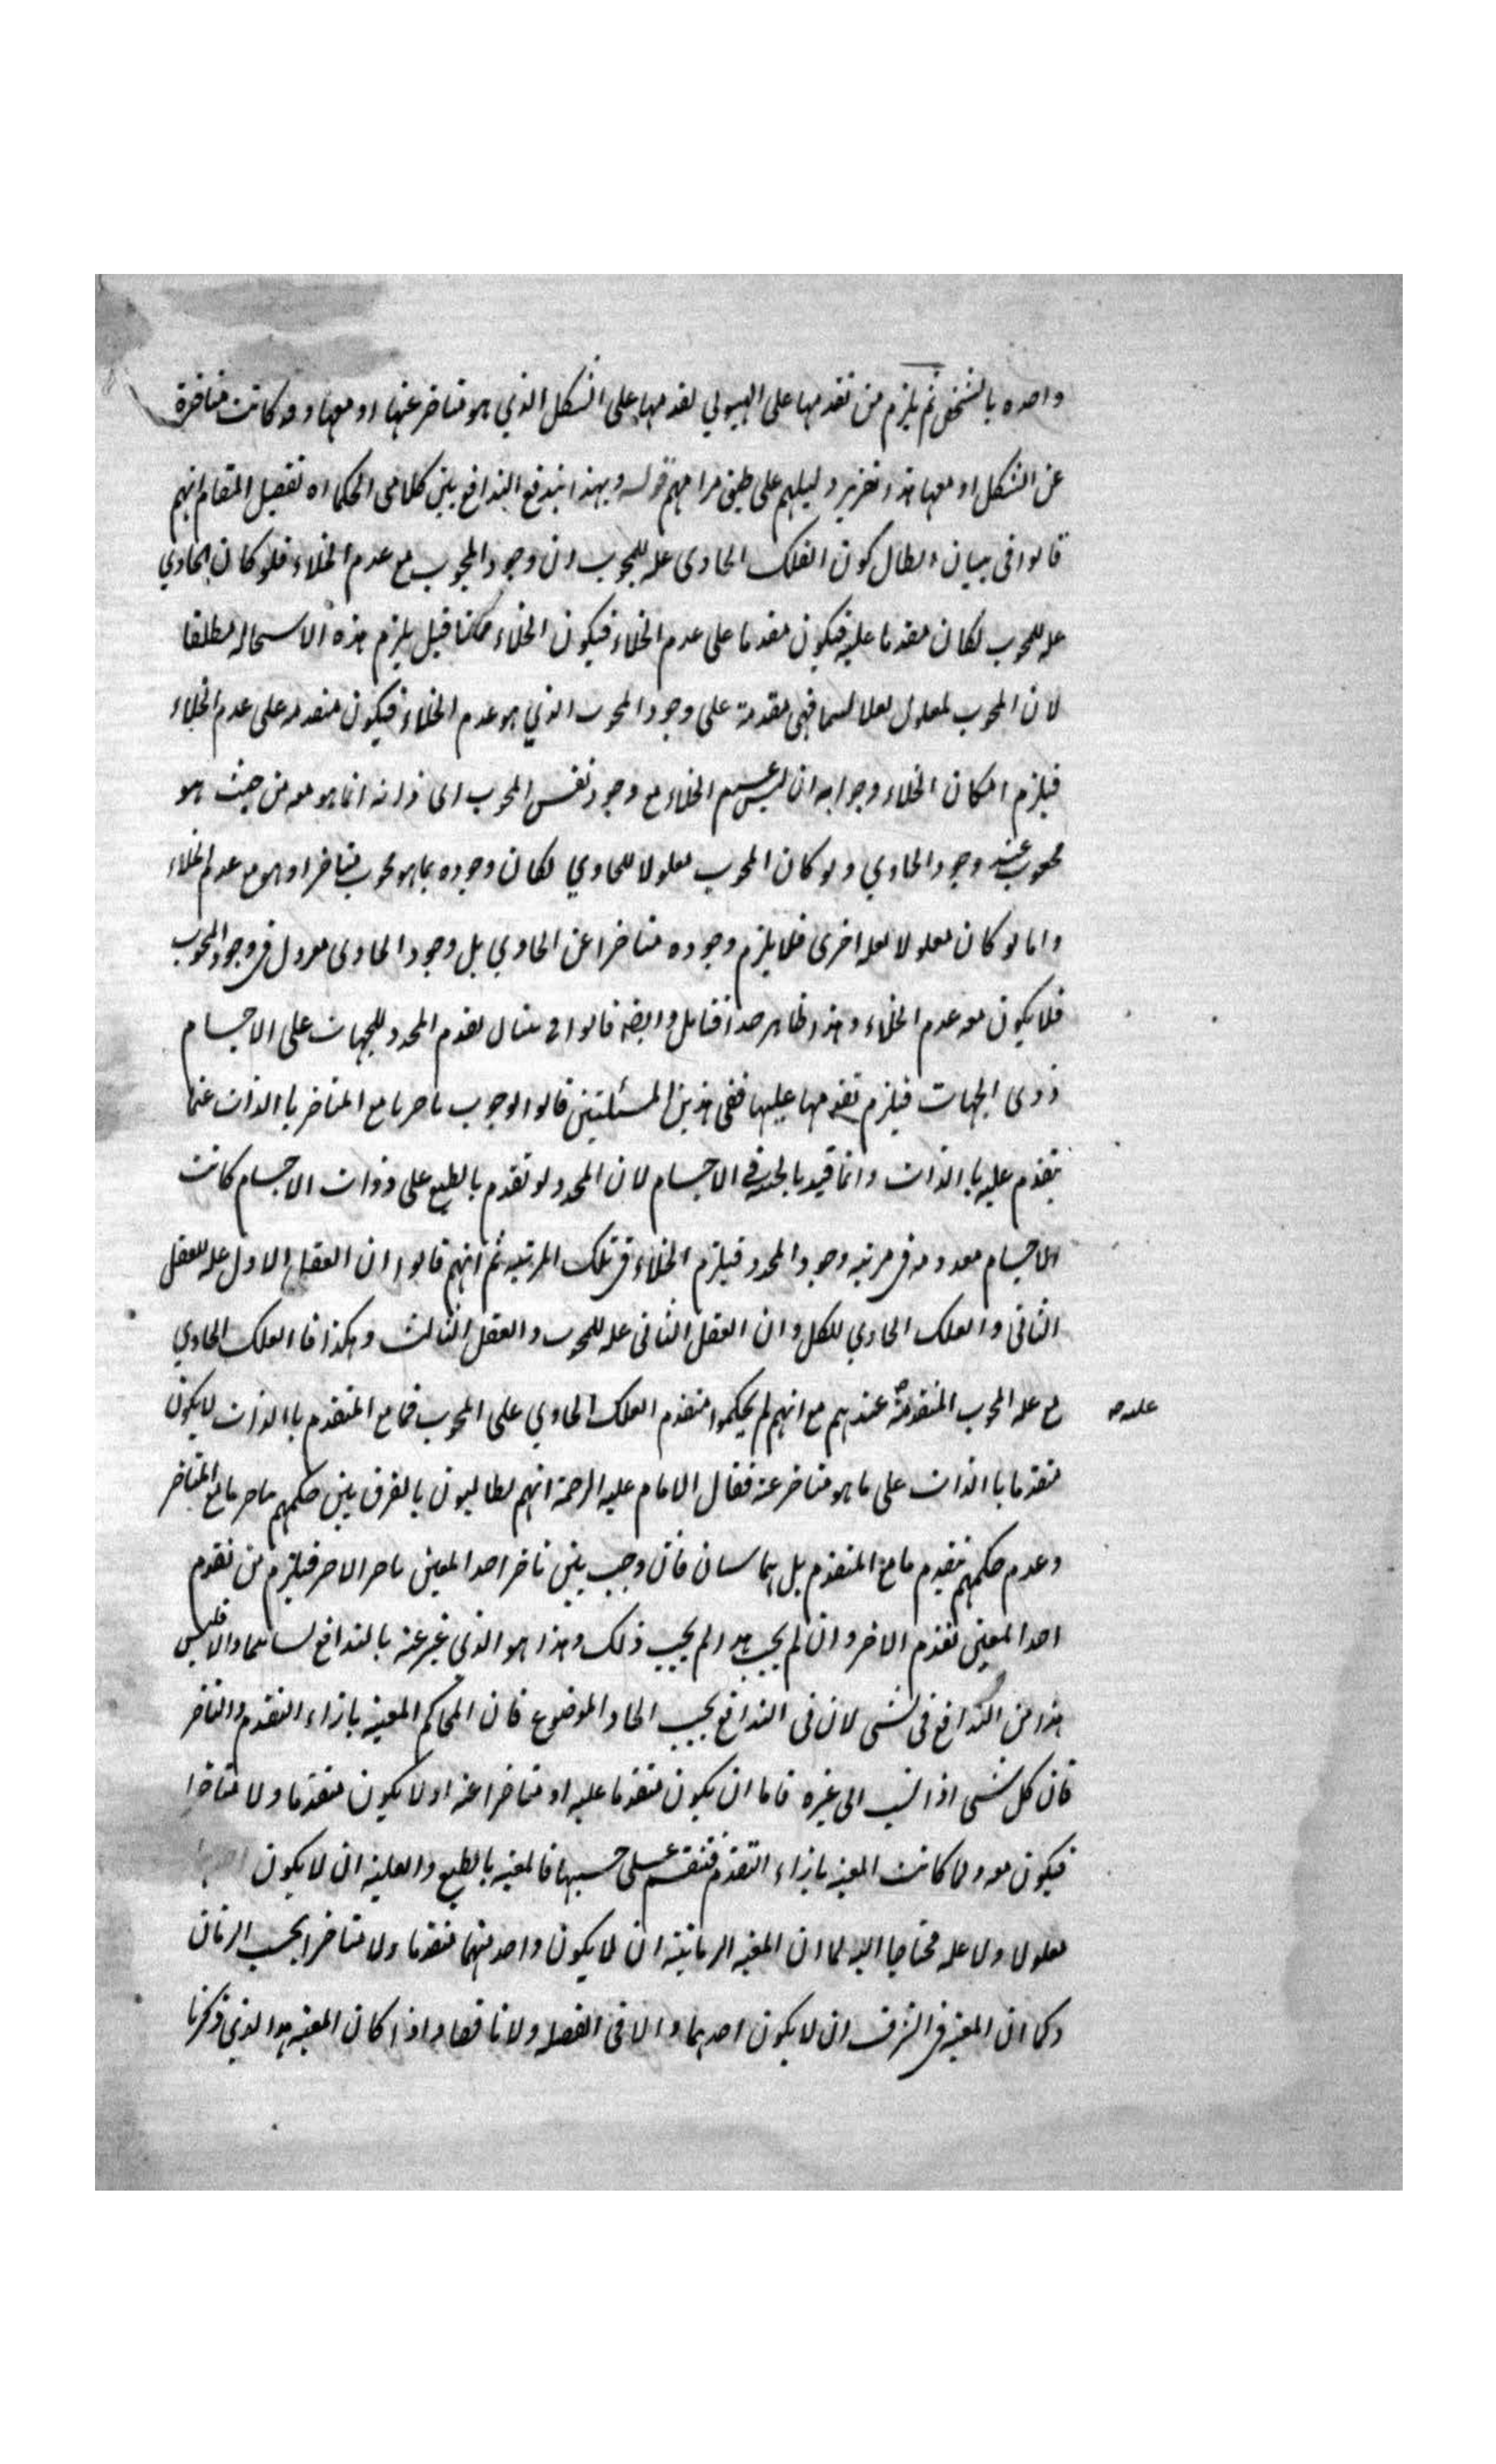 واحده بالشخص ثم يلزم من تقدمها على الهيولي تقدمها على الشكل الذي هو متاخر عنها او معها وقد كانت متاخرة
عن الشكل او معها هذا تقرير دليلهم على طبق مرامهم قوله وبهذا يندفع التدافع بين كلامى الحكماء اه تفصيل المقام انهم
قالوا فى بيان ابطال كون الفلك الحاوى عله للمحوى ان وجود المحوى مع عدم الخلاء فلو كان الحاوي
عله للمحوى لكان مقدما عليه فيكون مقدما على عدم الخلاء فيكون الخلاء ممكنا قيل يلزم هذه الاستحاله مطلقا
لان المحوى معلول لعله فهى مقدمة على وجود المحوى الذي هو عدم الخلاء فيكون متقدمه على عدم الخلاء
فيلزم امكان الخلاء وجوابه ان ليس عدم الخلاء مع وجود نفس المحوى اى ذاته انما هو معه من حيث هو
محوى عند وجود الحاوي ولو كان المحوى معلولا للحاوي لكان وجوده بما هو محوى متاخرا وهو مع عدم الخلاء
واما لو كان معلولا لعله اخرى فلا يلزم وجوده متاخرا عن الحاوي بل وجود الحاوى فى وجود المحوى
فلا يكون معه عدم الخلاء وهذا ظاهر جدا فتامل وايضا قالوا فى بيان تقدم المحدد للجهات على الاجسام
ذوى الجهات فيلزم تقدمها عليها ففى هذين المسئلتين قالوا بوجوب تاخر ما مع المتاخر بالذات عما
يتقدم عليه بالذات وانما قيد بالجهة فى الاجسام لان المحدد لو تقدم بالطبع على ذوات الاجسام كانت
الاجسام معدومه فى مرتبه وجود المحدد فيلزم الخلاء فى تلك المرتبه ثم انهم قالوا ان العقل الاول عله للعقل
الثانى والفلك الحاوي للكل وان العقل الثانى عله للمحوى والعقل الثالث وهكذا فالفلك الحاوي
مع عله المحوى المتقدمة عندهم مع انهم لم يحكموا بتقدم الفلك الحاوي على المحوى فمامع المتقدم بالذات لا يكون
عليه
متقدما بالذات على ما هو متاخر عنه فقال الامام عليه الرحمة انهم يطالبون بالفرق بين حكمهم بتاخر ما مع المتاخر
وعدم حكمهم بتقدم ما مع المتقدم بل هما سيان فان وجب من تاخر احد المعين تاخر الاخر فيلزم من تقدم
احد المعين تقدم الاخر وان لم يجب هذا لم يجب ذلك وهذا هو الذي عبر عنه بالتدافع والا فليس
هذا من التدافع فى شى لان فى التدافع يجب اتحاد الموضوع فان المحاكم المعية بازاء التقدم والتاخر
فان كل شى اذا نسب الى غيره فاما ان يكون متقدما عليه او متاخرا عنه او لا يكون متقدما ولا متاخرا
فيكون معه ولما كانت المعية بازاء التقدم فتنقسم على حسبها فالمعية بالطبع والعلية ان لا يكون
معلولا ولا عله محتاجا اليه كما ان المعية الزمانية ان لا يكون واحد منهما متقدما ولا متاخرا بحسب الزمان
وكما ان المعية فى الشرف ان لا يكون احدهما زائدا فى الفضل ولا ناقصا واذا كان المعية هو الذي ذكرنا